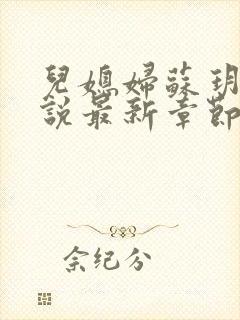 兒媳婦蘇玥
說最新章節
佘纪分